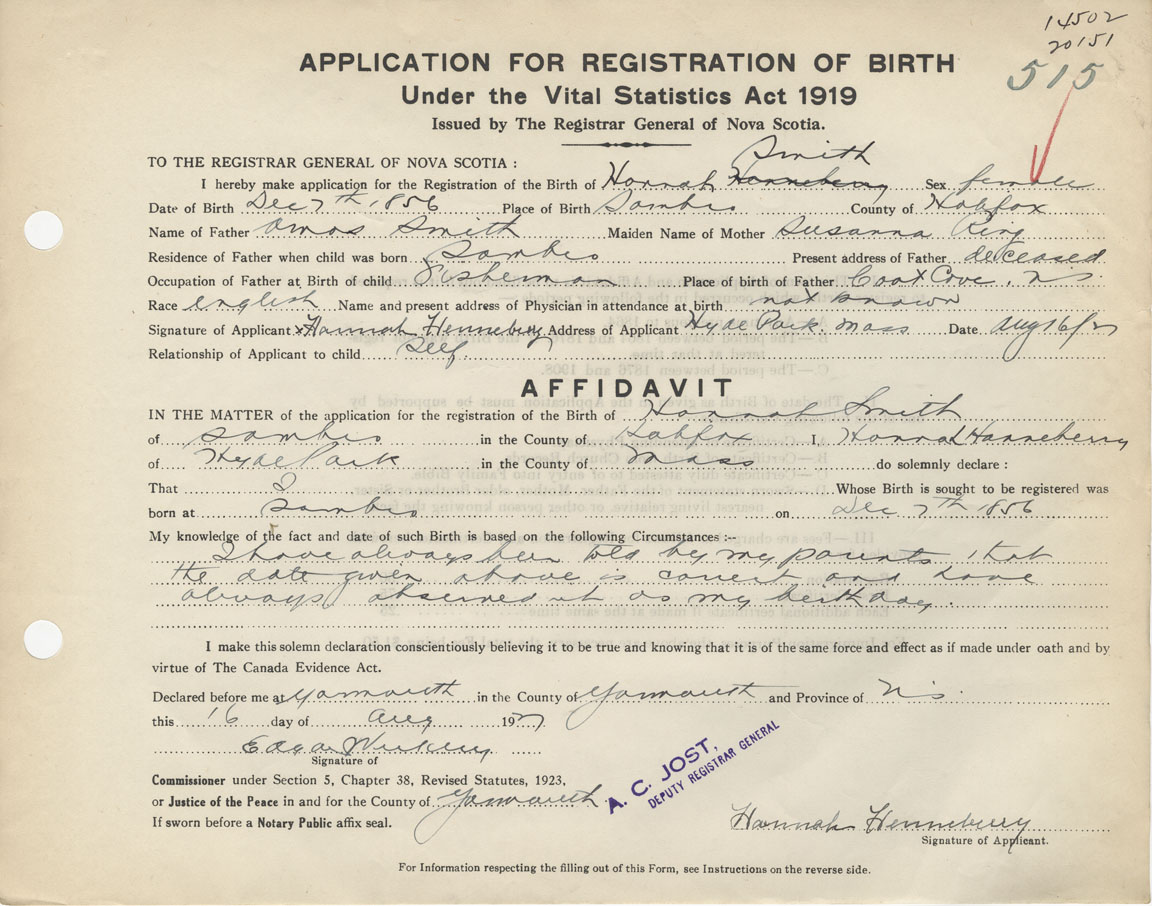 14502
20151
515
APPLICATION FOR REGISTRATION OF BIRTH
Under the Vital Statistics Act 1919
Issued by The Registrar General of Nova Scotia.
TO THE REGISTRAR GENERAL OF NOVA SCOTIA :
Smith
I hereby make application for the Registration of the Birth of Hannah Henneberry Sex female
Date of Birth Dec 7th 1856 Place of Birth Sambro County of Halifax
Name of Father Amos Smith Maiden Name of Mother Susanna Ring
Residence of Father when child was born Sambro Present address of Father deceased
Occupation of Father at Birth of child Fisherman Place of birth of Father Coot Cove, N.S.
Race English Name and present address of Physician in attendance at birth not known
Signature of Applicant x Hannah Henneberry Address of Applicant Hyde Park. Mass Date Aug 16/27
Relationship of Applicant to child Self.
AFFIDAVIT
IN THE MATTER of the application for the registration of the Birth of Hannah Smith
of Sambro in the County of Halifax I, Hannah Hanneberry
of Hyde Park in the County of Mass do solemnly declare :
That I Whose Birth is sought to be registered was
born at Sambro on Dec 7th 1856
My knowledge of the fact and date of such Birth is based on the following Circumstances :--
I have always been told by my parents that
the date given above is correct and have
always observed it as my birthday.
I make this solemn declaration conscientiously believing it to be true and knowing that it is of the same force and effect as if made under oath and by
virtue of The Canada Evidence Act.
Declared before me at Yarmouth in the County of Yarmouth and Province of N.S.
this 16 day of Aug 1927
Edgar
Signature of
Commissioner under Section 5, Chapter 38, Revised Statutes, 1923,
or Justice of the Peace in and for the County of Yarmouth
If sworn before a Notary Public affix seal.
A. C. JOST,
DEPUTY REGISTRAR GENERAL
Hannah Henneberry
Signature of Applicant.
For Information respecting the filling out of this Form, see Instructions on the reverse side.